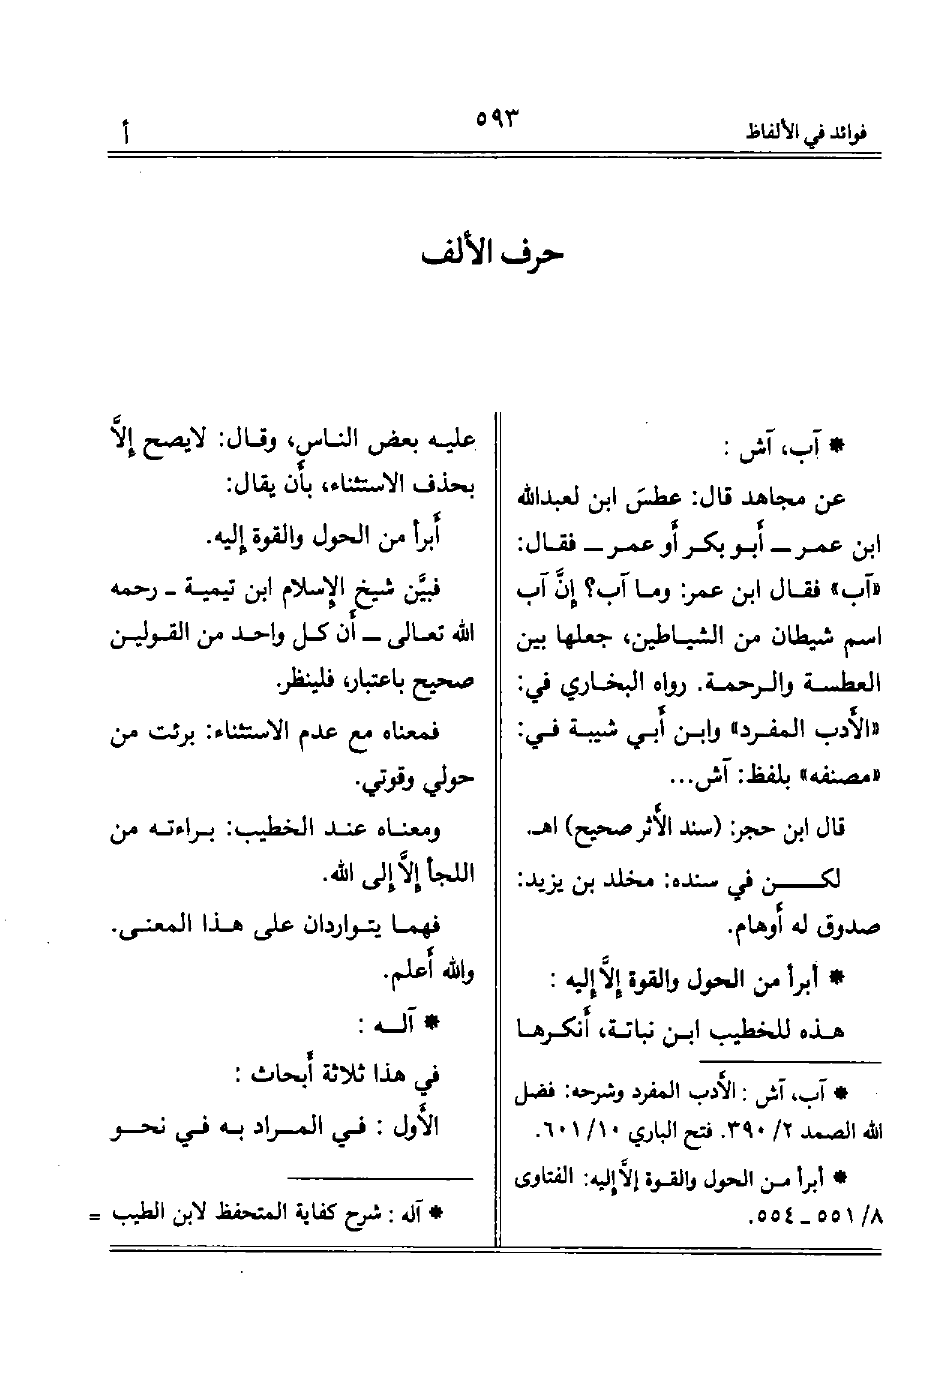 فوائد في الألفاظ
٥٩٣
أ
حرف الألف
* آب، آش :
عن مجاهد قال: عطسَ ابن لعبدالله
ابن عمر ــ أبو بكر أو عمر ــ فقال:
«آب» فقال ابن عمر: وما آب؟ إنَّ آب
اسم شيطان من الشياطين، جعلها بين
العطسة والرحمة. رواه البخاري في:
«الأدب المفرد» وابن أبي شيبة في:
«مصنفه» بلفظ: آش...
قال ابن حجر: (سند الأثر صحيح) اهـ.
لكن في سنده: مخلد بن يزيد:
صدوق له أوهام.
* أبرأ من الحول والقوة إلاَّ إليه :
هذه للخطيب ابن نباتة، أنكرها
* آب، آش : الأدب المفرد وشرحه: فضل
الله الصمد ٢/ ٣٩٠. فتح الباري ١٠/ ٦٠١.
* أبرأ من الحول والقوة إلاَّ إليه: الفتاوى
٨/ ٥٥١ ـ ٥٥٤.
عليه بعض الناس، وقال: لايصح إلاَّ
بحذف الاستثناء، بأن يقال:
أبرأ من الحول والقوة إليه.
فبيَّن شيخ الإسلام ابن تيمية ـ رحمه
الله تعالى ــ أن كل واحد من القولين
صحيح باعتبار، فلينظر.
فمعناه مع عدم الاستثناء: برئت من
حولي وقوتي.
ومعناه عند الخطيب: براءته من
اللجأ إلاَّ إلى الله.
فهما يتواردان على هذا المعنى.
والله أعلم.
* آلـه :
في هذا ثلاثة أبحاث :
الأول : في المراد به في نحو
* آله : شرح كفاية المتحفظ لابن الطيب =